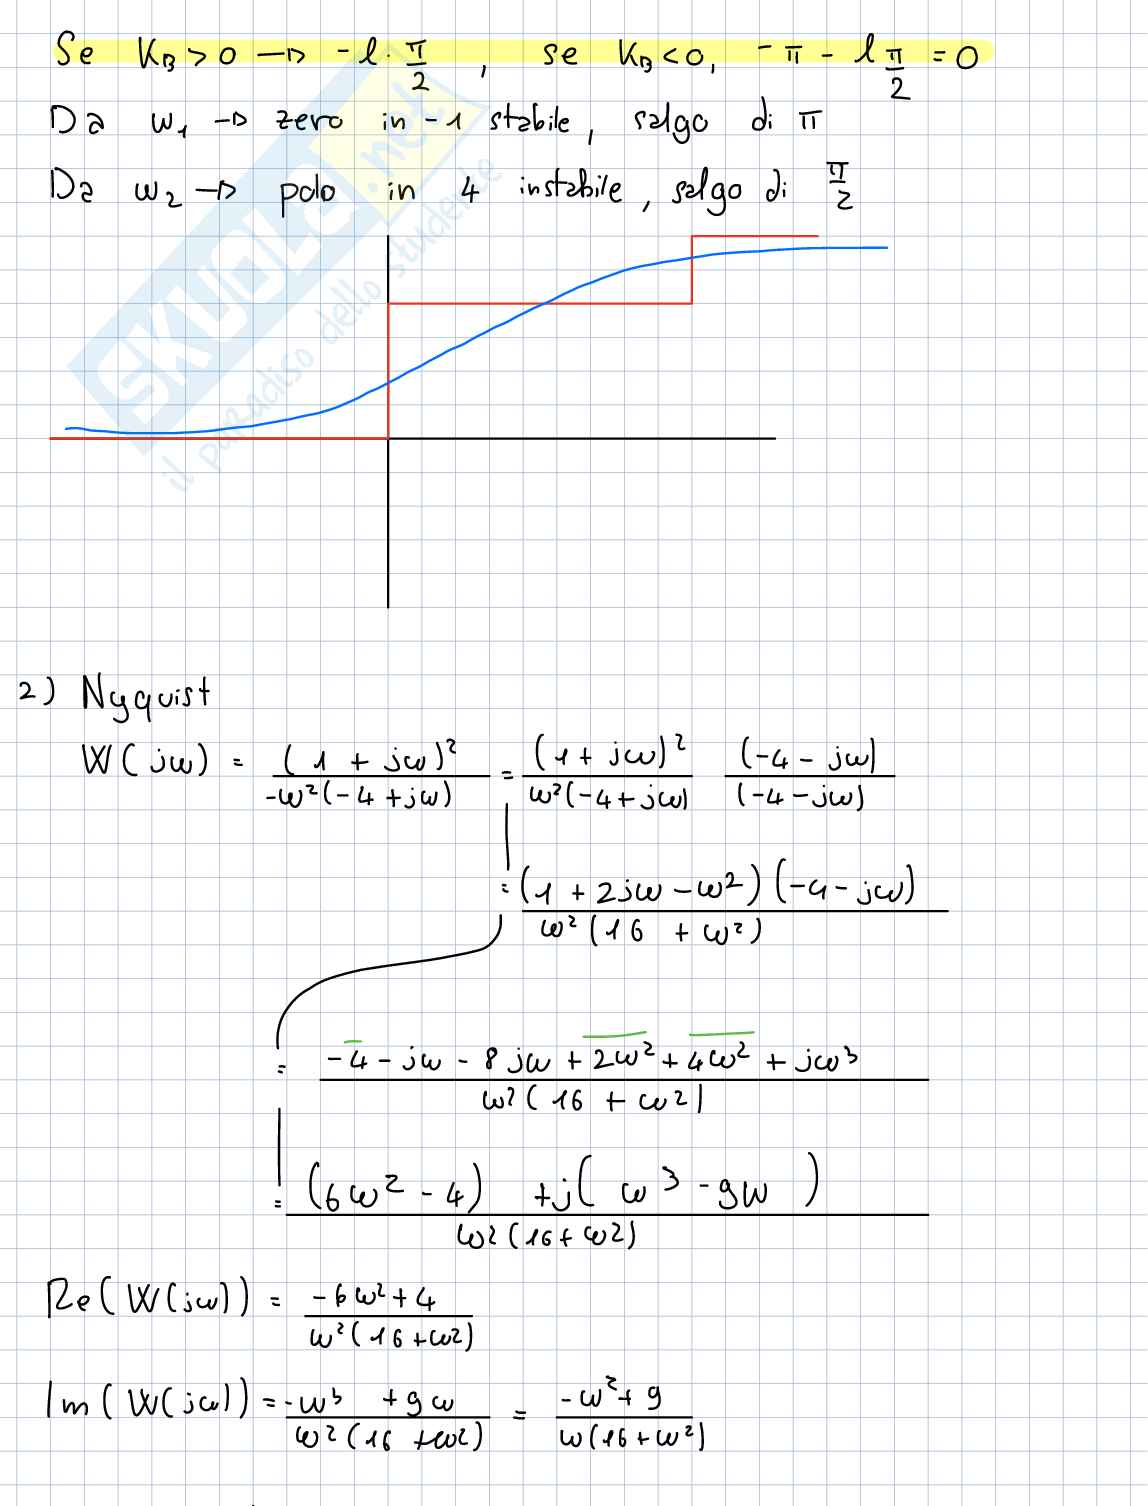 Se K_B > 0 → -l · π/2 , se K_B < 0, -π - l π/2 = 0
Da ω_1 → zero in -1 stabile, salgo di π
Da ω_2 → polo in 4 instabile, salgo di π/2
SKUOLA.net
il paradiso dello studente
2) Nyquist
W(jω) = (1 + jω)² / -ω²(-4 + jω) = (1 + jω)² / ω²(-4 + jω) (-4 - jω) / (-4 - jω)
= (1 + 2jω - ω²)(-4 - jω) / ω²(16 + ω²)
= -4 - jω - 8jω + 2ω² + 4ω² + jω³ / ω²(16 + ω²)
= (6ω² - 4) + j(ω³ - 9ω) / ω²(16 + ω²)
Re(W(jω)) = -6ω² + 4 / ω²(16 + ω²)
Im(W(jω)) = -ω³ + 9ω / ω²(16 + ω²) = -ω² + 9 / ω(16 + ω²)